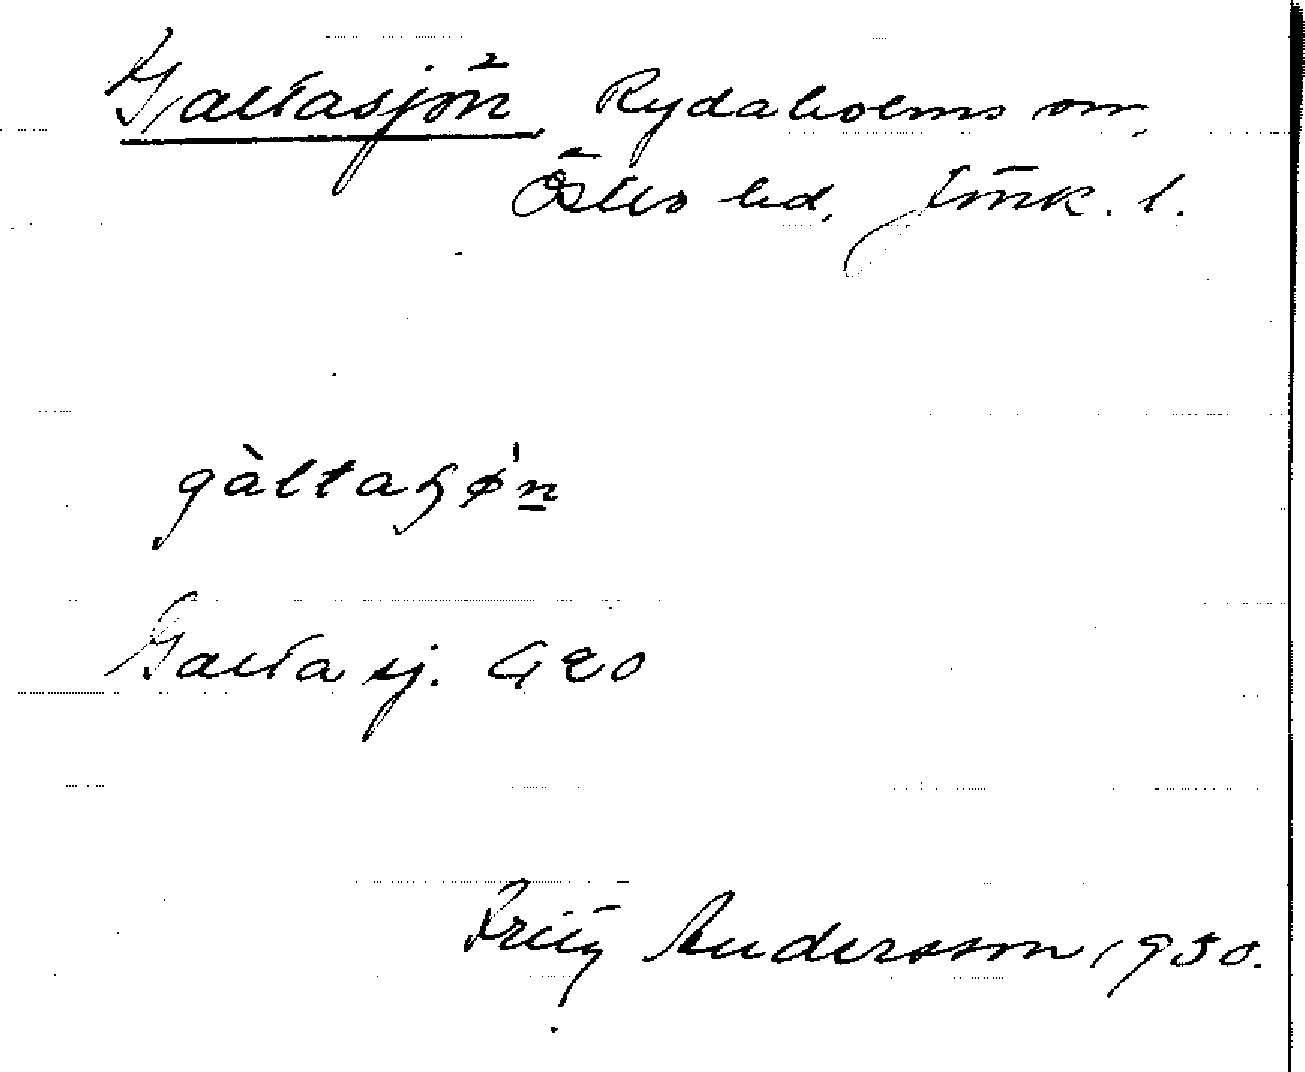 Galtasjön Rydaholms sn,
Östbo hd, Jönk. l.
gàltaʂø'n
Galta sj. GEO
Fritz Andersson, 1930.